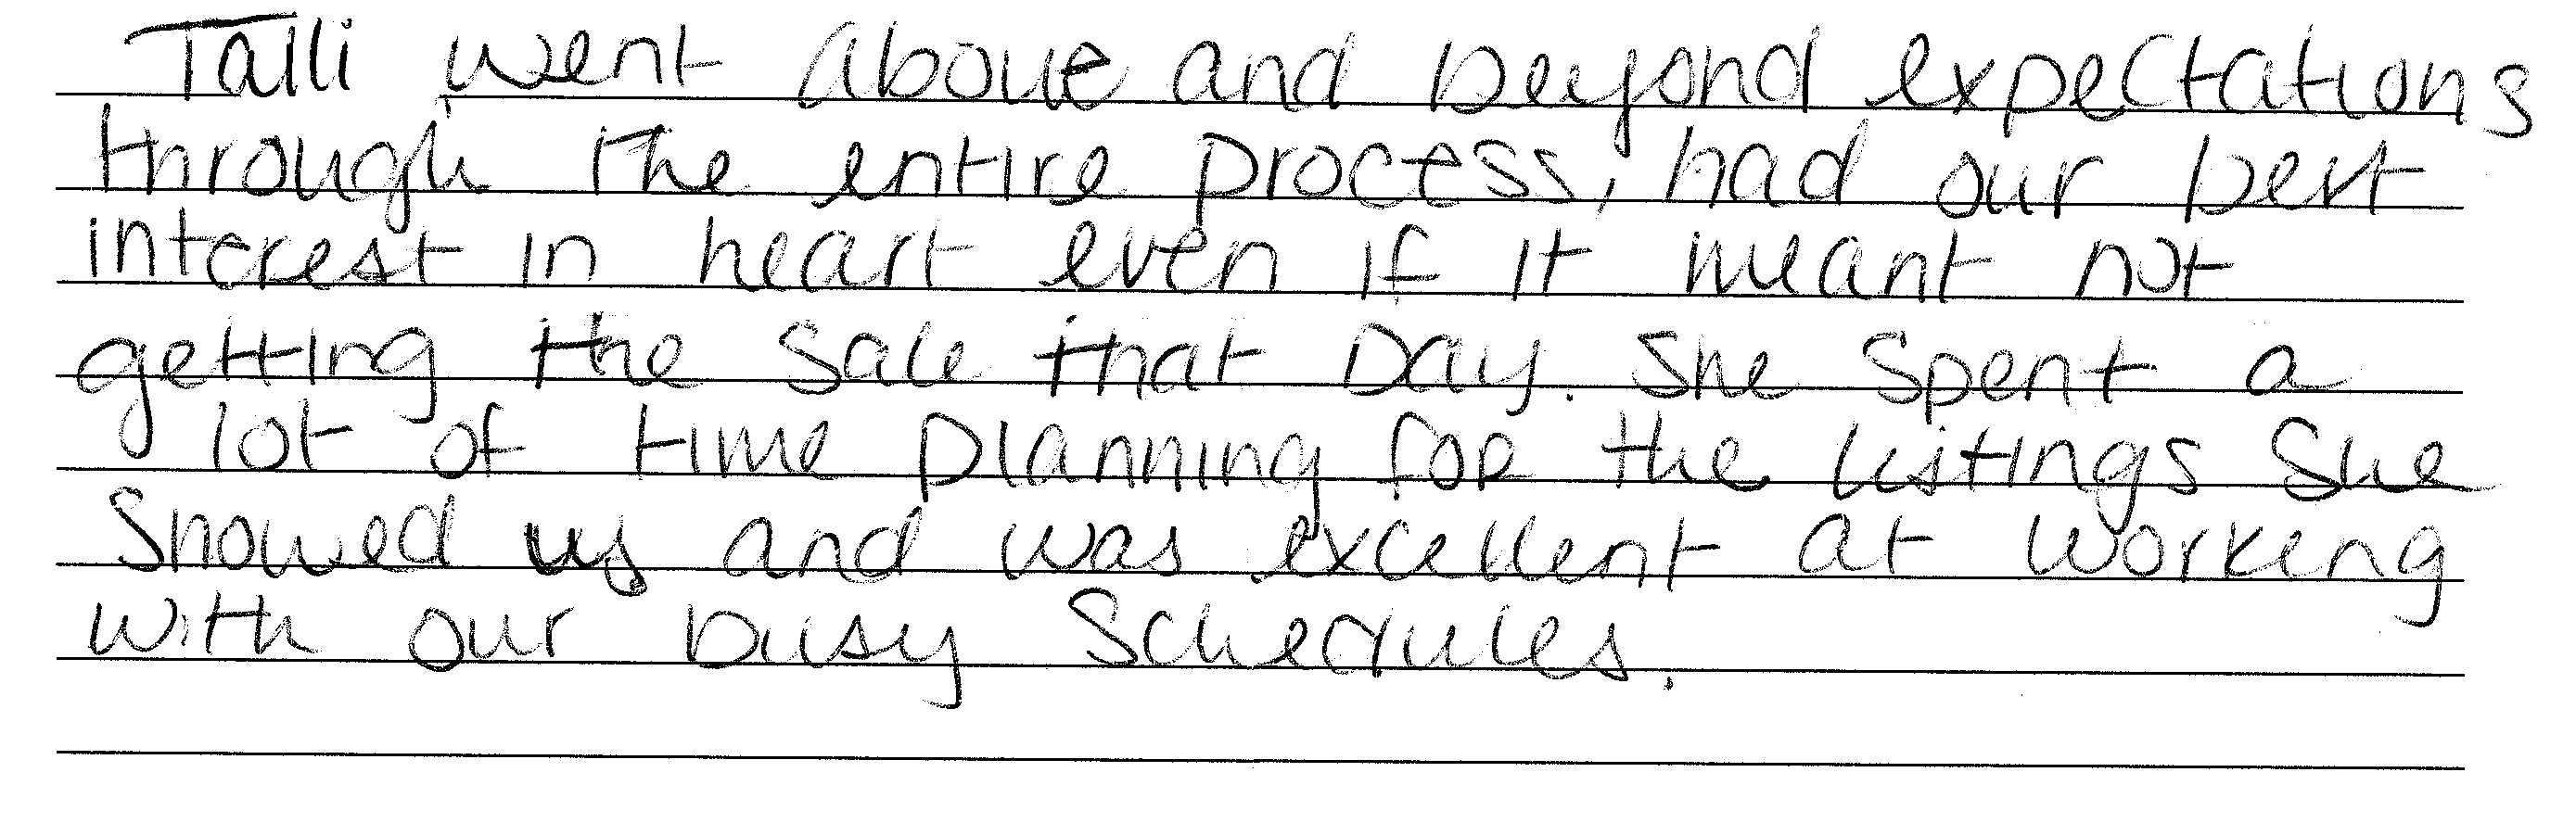 Talli went above and beyond expectations
through the entire process, had our best
interest in heart even if it meant not
getting the sale that Day. She spent a
lot of time planning for the listings She
Showed us and was excellent at working
with our busy Schedules.